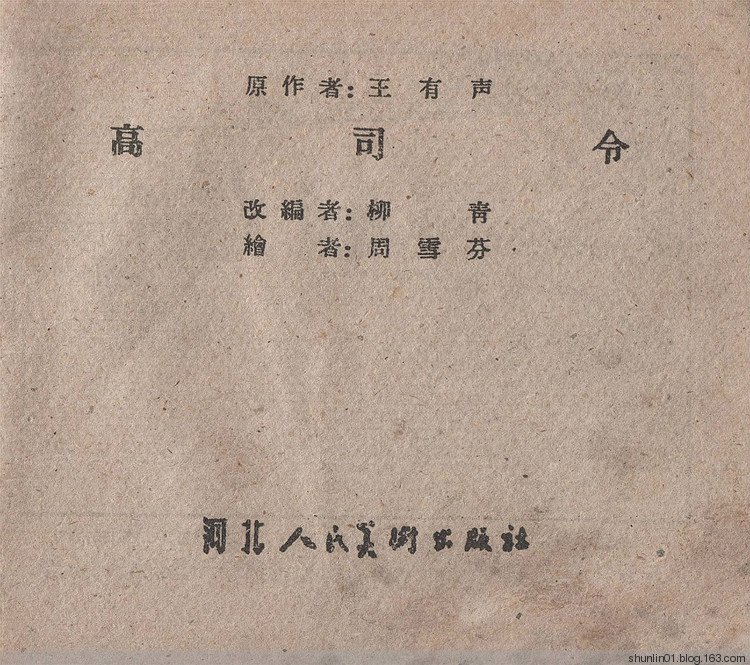 原作者：王有声
高司令
改編者：柳青
繪者：周雪芬
河北人民美術出版社
shunlin01.blog.163.com